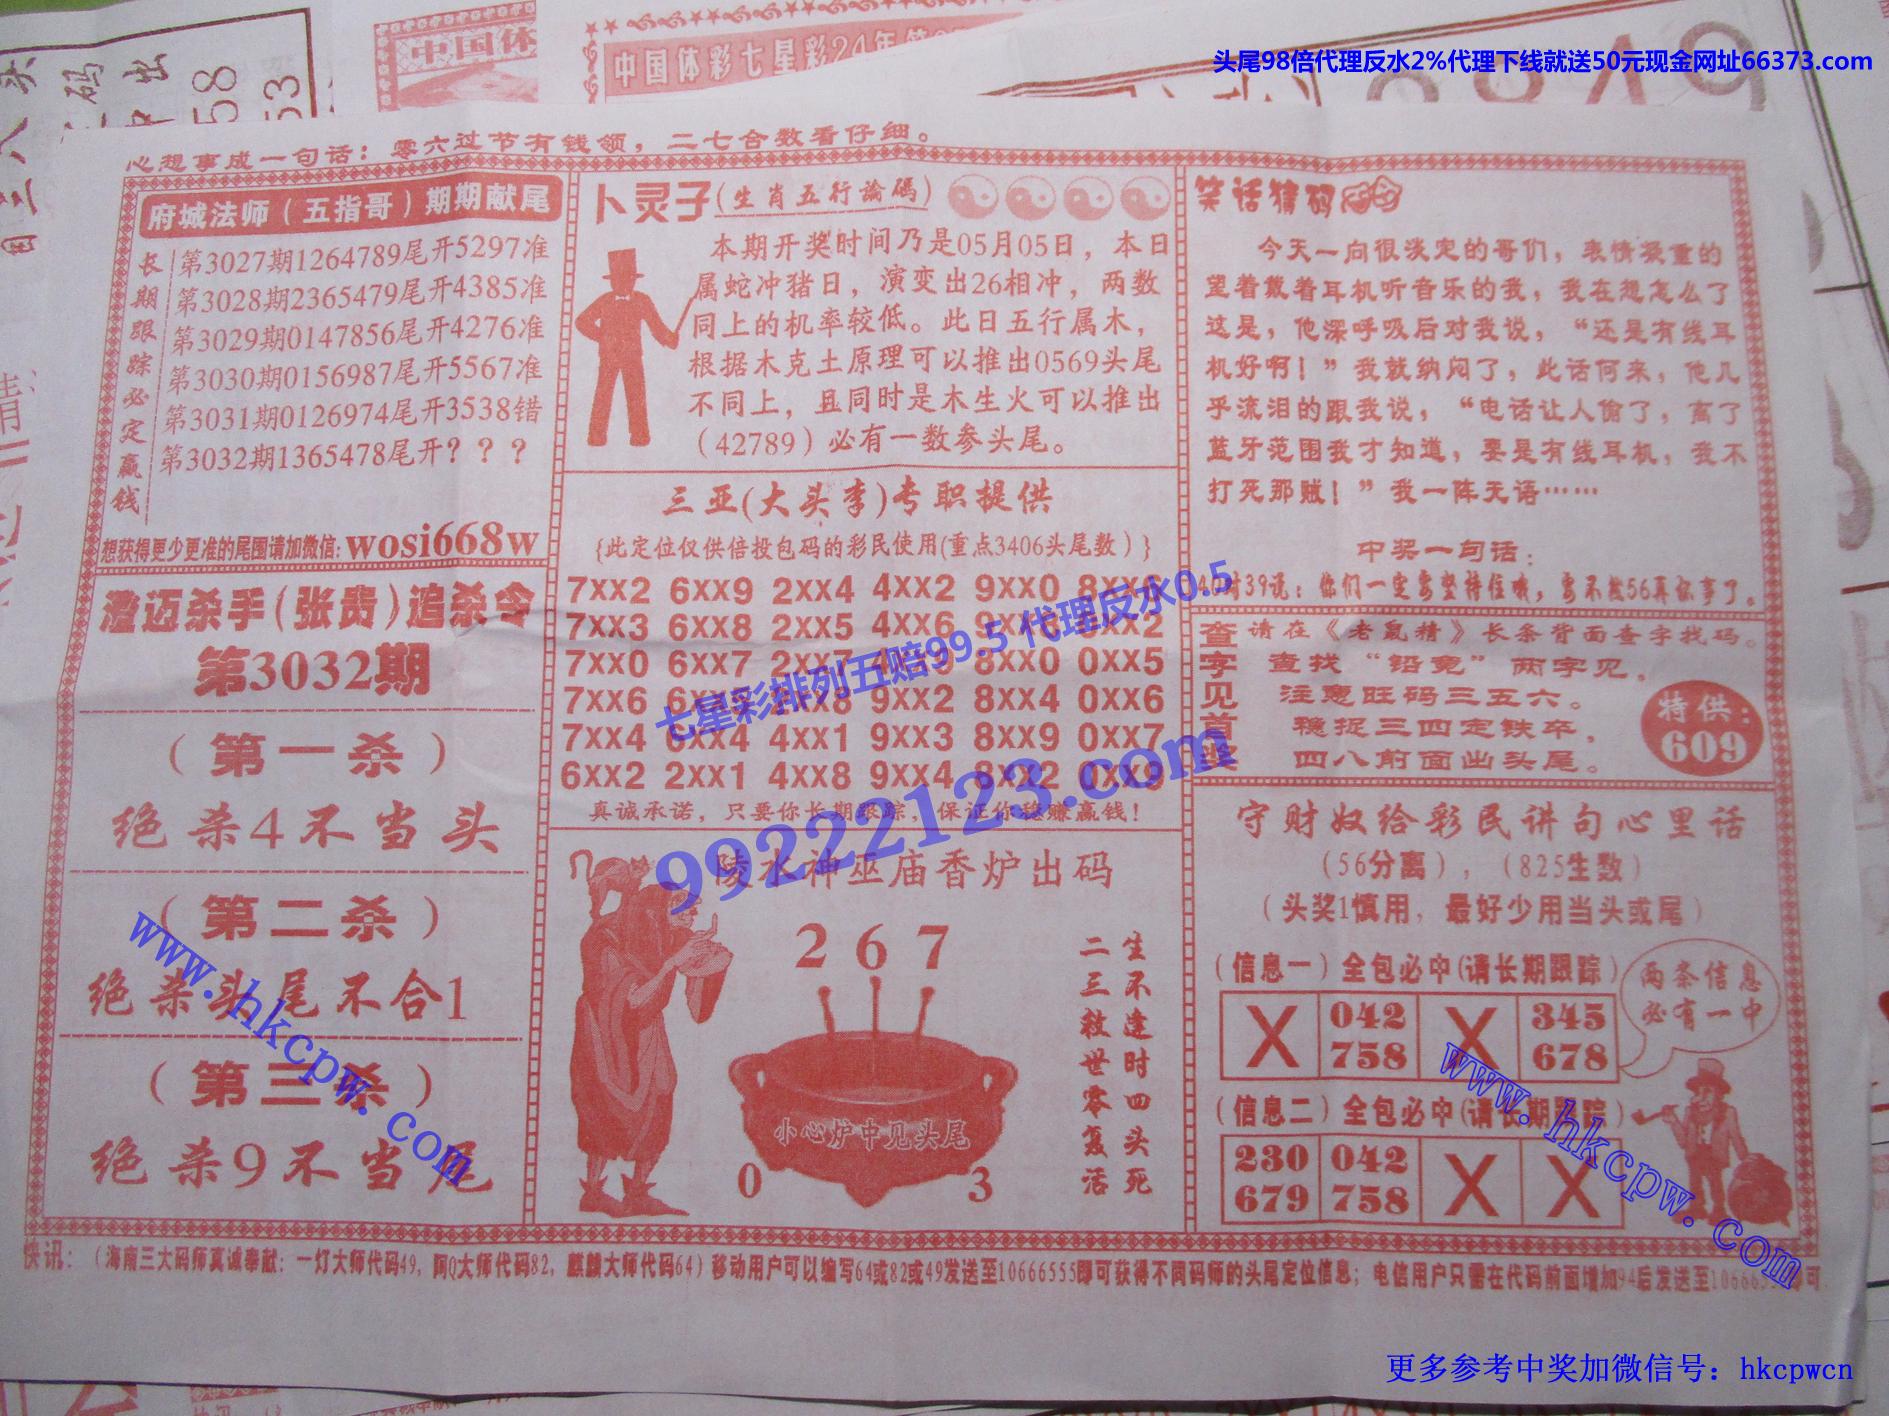 头尾98倍代理反水2%代理下线就送50元现金网址66373.com
中国体
中国体彩七星彩24年第
心想事成一句话：零六过节有钱领，二七合数看仔细。
府城法师（五指哥）期期献尾
长期跟踪必定赢钱
第3027期1264789尾开5297准
第3028期2365479尾开4385准
第3029期0147856尾开4276准
第3030期0156987尾开5567准
第3031期0126974尾开3538错
第3032期1365478尾开？？？
想获得更少更准的尾围请加微信：wosi668w
澄迈杀手（张贵）追杀令
第3032期
（第一杀）
绝杀4不当头
（第二杀）
绝杀头尾不合1
（第三杀）
绝杀9不当尾
卜灵子（生肖五行論碼）
本期开奖时间乃是05月05日，本日
属蛇冲猪日，演变出26相冲，两数
同上的机率较低。此日五行属木，
根据木克土原理可以推出0569头尾
不同上，且同时是木生火可以推出
（42789）必有一数参头尾。
三亚（大头李）专职提供
{此定位仅供倍投包码的彩民使用(重点3406头尾数）}
7XX2 6XX9 2XX4 4XX2 9XX0 8XX6
7XX3 6XX8 2XX5 4XX6
7XX0 6XX7 2XX7 8XX0 0XX5
7XX6 9XX2 8XX4 0XX6
7XX4 6XX4 4XX1 9XX3 8XX9 0XX7
6XX2 2XX1 4XX8 9XX4 8XX2 0XX9
真诚承诺，只要你长期跟踪，保证你稳赚赢钱！
陵水神巫庙香炉出码
2 6 7
小心炉中见头尾
0 3
生不逢时四头死
二三救世零复活
笑话猜码
今天一向很淡定的哥们，表情凝重的
望着戴着耳机听音乐的我，我在想怎么了
这是，他深呼吸后对我说，“还是有线耳
机好啊！”我就纳闷了，此话何来，他几
乎流泪的跟我说，“电话让人偷了，离了
蓝牙范围我才知道，要是有线耳机，我不
打死那贼！”我一阵无语……
中奖一句话：
对39说：你们一定要坚持住哦，要不然56真坏事了。
查字见首奖
请在《老鼠精》长条背面查字找码。
查找“铅竞”两字见，
注意旺码三五六。
稳捉三四定铁卒，
四八前面出头尾。
特供：
609
守财奴给彩民讲句心里话
（56分离），（825生数）
（头奖1慎用，最好少用当头或尾）
（信息一）全包必中(请长期跟踪)
X 042 X 345
758 678
两条信息
必有一中
（信息二）全包必中(请长期跟踪)
230 042 X X
679 758
快讯：（海南三大码师真诚奉献：一灯大师代码49，阿Q大师代码82，麒麟大师代码64）移动用户可以编写64或82或49发送至10666555即可获得不同码师的头尾定位信息；电信用户只需在代码前面增加94后发送至10666555即可
七星彩排列五赔99.5 代理反水0.5
99222123.com
www.hkcpw.com
www.hkcpw.com
更多参考中奖加微信号：hkcpwcn